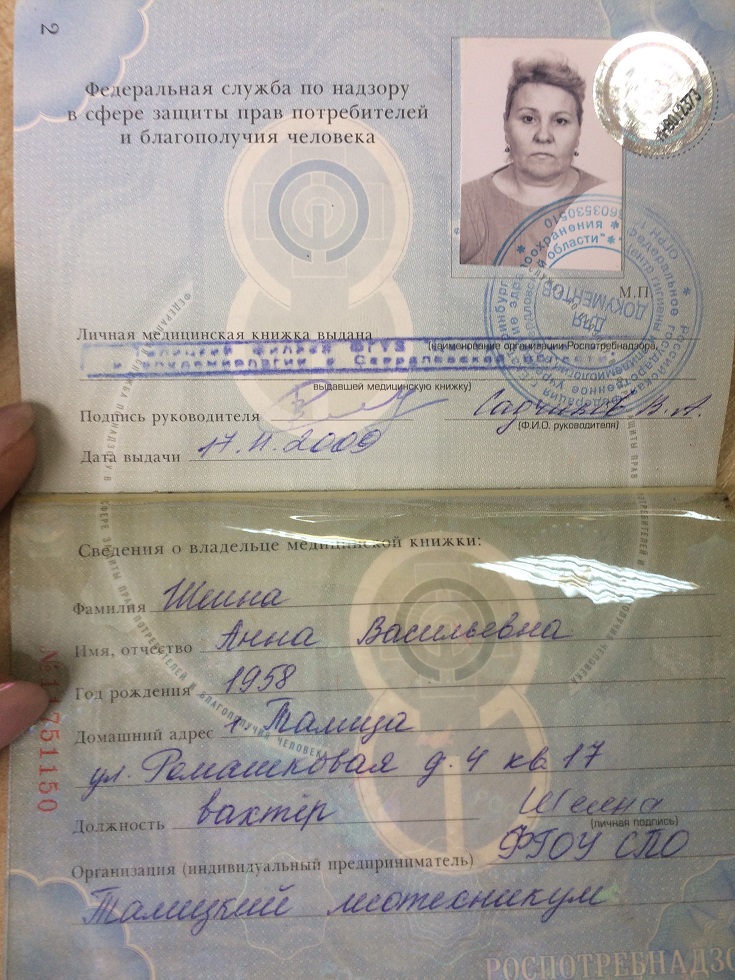 2
Федеральная служба по надзору
в сфере защиты прав потребителей
и благополучия человека
М.П.
Личная медицинская книжка выдана
(наименование организации Роспотребнадзора,
филиал ФГУЗ
и эпидемиологии в Свердловской области"
выдавшей медицинскую книжку)
ДЛЯ ДОКУМЕНТОВ
Подпись руководителя Садчиков В.А.
(Ф.И.О. руководителя)
Дата выдачи 17.11.2009
Сведения о владельце медицинской книжки:
Фамилия Шеина
Имя, отчество Анна Васильевна
Год рождения 1958
Домашний адрес г Талица
ул. Ромашковая д. 4 кв 17
Должность вахтёр Шеина
(личная подпись)
Организация (индивидуальный предприниматель) ФГОУ СПО
Талицкий лесотехникум
№11751150
РОСПОТРЕБНАДЗО